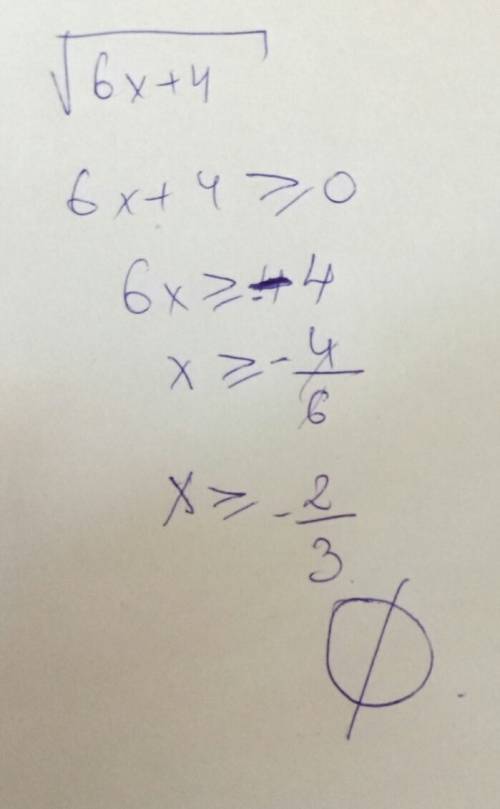 √6x+4
6x+4 ≥ 0
6x ≥ -4
x ≥ -4/6
x ≥ -2/3
∅